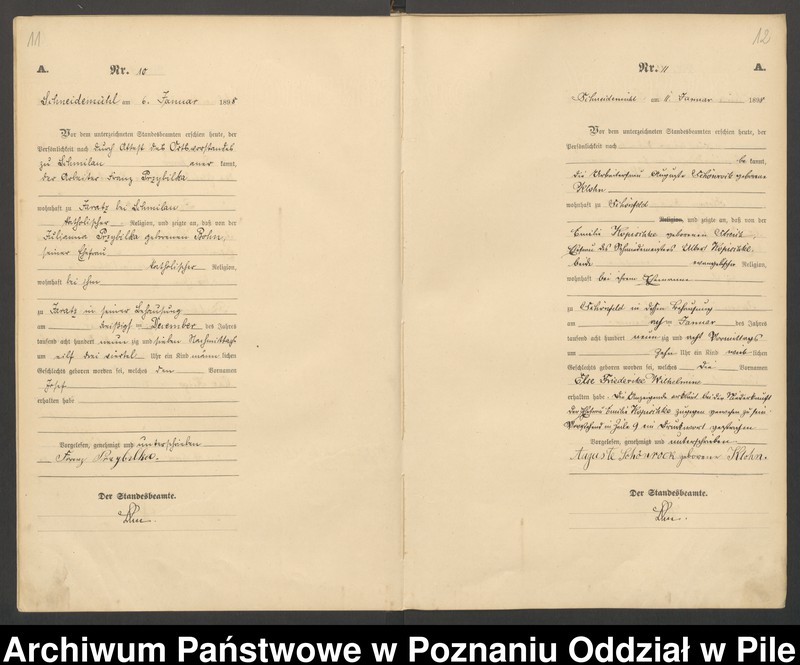 11
A.
Nr. 10
Schneidemühl am 6. Januar 1898
Vor dem unterzeichneten Standesbeamten erschien heute, der
Persönlichkeit nach durch Attest des Ortsvorstandes
zu Schmilau aner kannt,
der Arbeiter Franz Przybilka
wohnhaft zu Jaratz bei Schmilau
katholischer Religion, und zeigte an, daß von der
Julianna Przybilka geborenen
seiner Ehefrau
katholischer Religion,
wohnhaft bei ihm
zu Jaratz in seiner Behausung
am dreißigsten Dezember des Jahres
tausend acht hundert neun zig und sieben Nachmittags
um elf drei viertel Uhr ein Kind männ lichen
Geschlechts geboren worden sei, welches den Vornamen
Josef
erhalten habe
Vorgelesen, genehmigt und unterschrieben
Franz Przybilka.
Der Standesbeamte.
12
Nr. 11
A.
Schneidemühl am 11 Januar 1898
Vor dem unterzeichneten Standesbeamten erschien heute, der
Persönlichkeit nach
be kannt,
die Arbeiterfrau Auguste Schönrock geborene
Klohn
wohnhaft zu Schönfeld
Religion, und zeigte an, daß von der
Emilie Koposchke geborenen
Ehefrau des Schmiedemeisters Albert Koposchke,
beide evangelischer Religion,
wohnhaft bei ihrem Ehemanne
zu Schönfeld in dessen Behausung
am acht ten Januar des Jahres
tausend acht hundert neun zig und acht Vormittags
um zehn Uhr ein Kind weib lichen
Geschlechts geboren worden sei, welches die Vornamen
Else Friederike Wilhelmine
erhalten habe. Die Anzeigende erklärt bei der Niederkunft
der Ehefrau Emilie Koposchke zugegen gewesen zu sein
Vorstehend in Zeile 9 ein Druckwort gestrichen
Vorgelesen, genehmigt und unterschrieben
Auguste Schönrock geborene Klohn.
Der Standesbeamte.
Archiwum Państwowe w Poznaniu Oddział w Pile